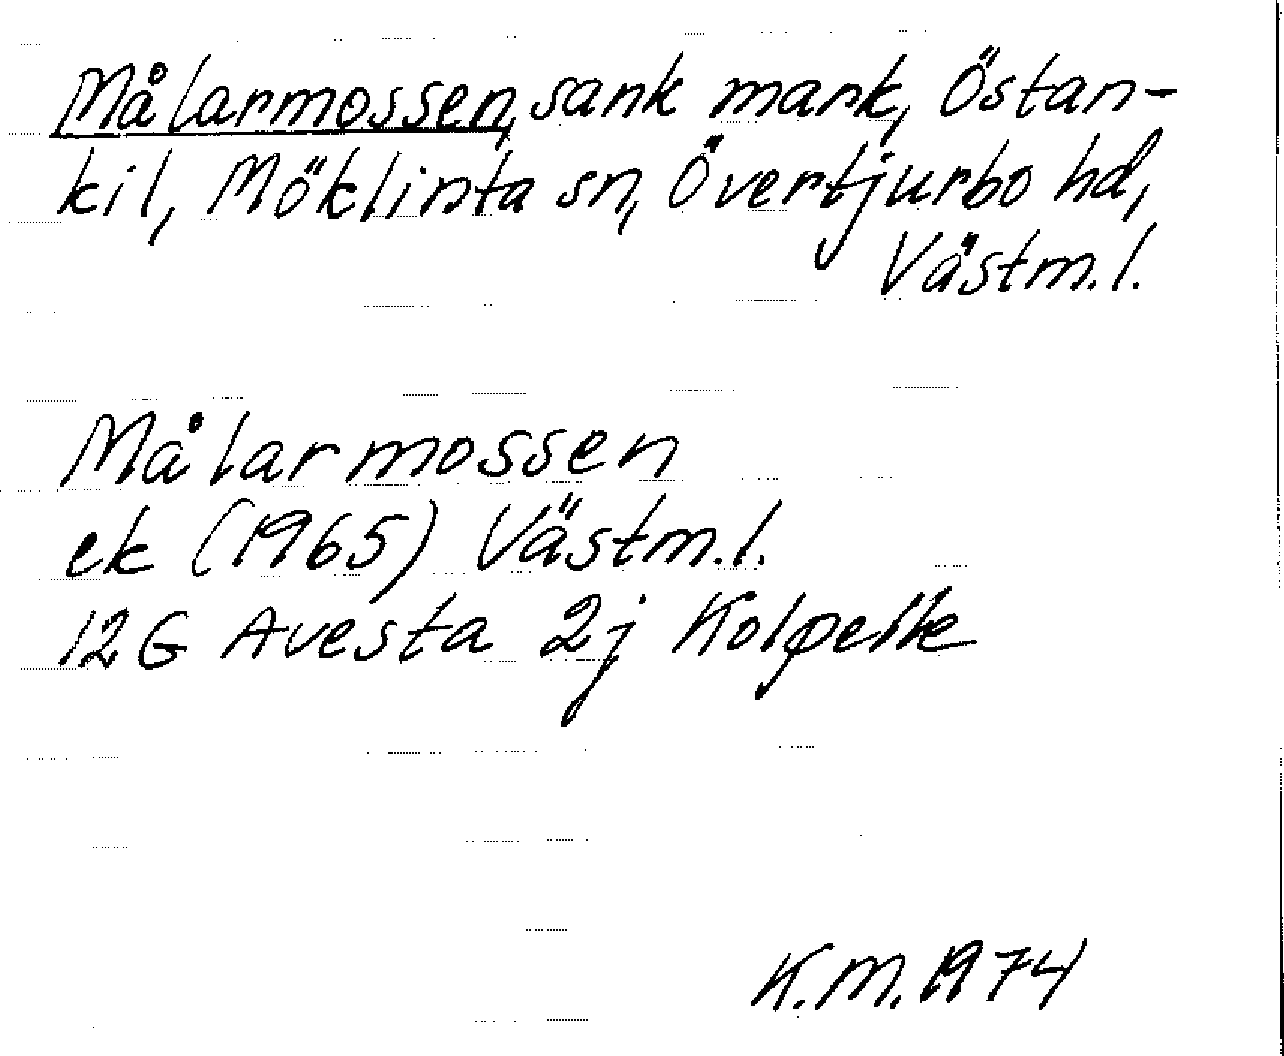 Målarmossen, sank mark, Östan-
kil, Möklinta sn, Övertjurbo hd,
Västm.l.
Målarmossen
ek (1965) Västm.l.
12G Avesta 2j Kolpelle
K.M. 1974